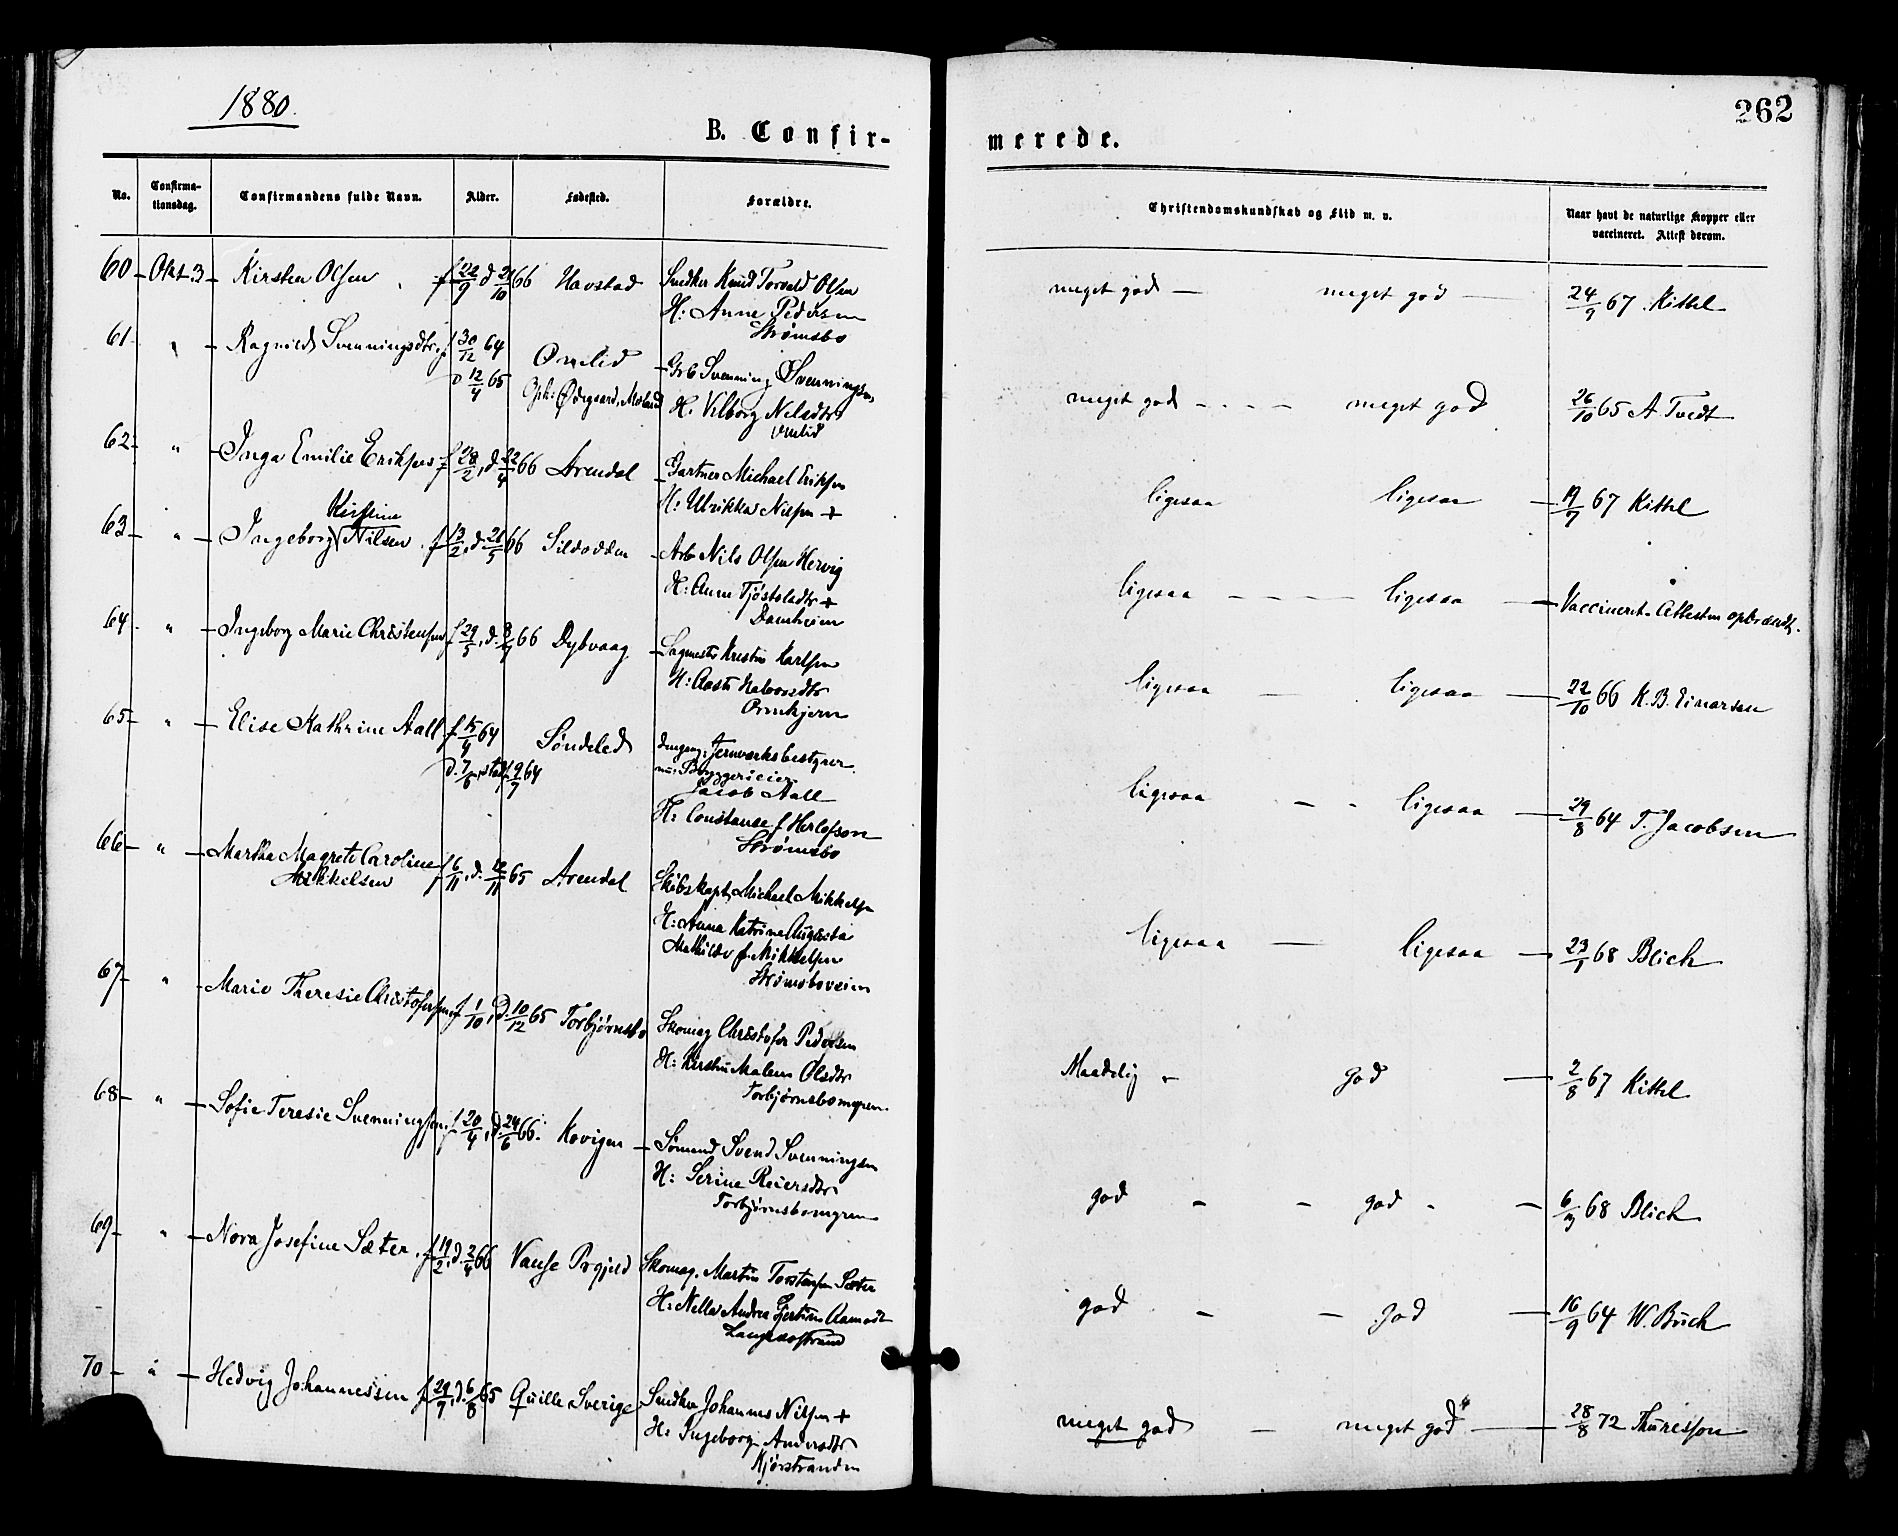 1880.
262
B. Confir-
merede.
No.
Confirma-
tionsdag.
Confirmandens fulde Navn.
Alder.
Fødested.
Forældre.
Christendomskundskab og Flid m. v.
Naar havt de naturlige Kopper eller
vaccineret. Attest derom.
60 - Okt. 3 - Kirsten Olsen f 22/9 d 21/10 66 Havstad Snedker Knud Torvald Olsen
H: Anne Pedersen
Strømsbo
meget god — meget god — 24/9 67 Kittel
61 " - Ragnild Svenningsdtr. f 30/12 64
d 12/4 65
Omlid
Oph: Ødegaard, Moland
Grb Svenning Svenningsen
H: Vilborg Nilsdtr
Omlid
meget god - - - - meget god 26/10 65 A. Tvedt
62 - " - Inga Emilie Eriksen f 28/2, d. 22/4 66 Arendal Gartner Michael Eriksen
H: Ulrikke Nilsen +
ligesaa ligesaa — 19/7 67 Kittel
Kirstine
63 - " - Ingeborg Nilsen f 13/2, d. 21/5 66 Sildodden Arb Nils Olsen Hervig
H: Anne Tjøstolsdtr +
Damheim
ligesaa - - - - ligesaa — Vaccineret. Attesten opbrændt.
64 - " - Ingeborg Marie Christensen f 29/5, d. 8/7 66 Dybvaag Sagmester Kristen Karlsen
H: Aaste Halvorsdtr
Ormkjern
ligesaa — ligesaa — 22/10 66 K. B. Einarsen
65 - " - Elise Kathrine Aall f 15/4 64
d. 7/6, stadf 9/7 64
Søndeled
dengang Jernværksbestyrer
nu: Bryggerieier
Jacob Aall
H: Constance f Herlofson
Strømsbo
ligesaa - - ligesaa — 29/8 64 T. Jacobsen
66 - " - Martha Magrete Caroline
Mikkelsen
f 6/11, d. 12/11 65 Arendal Skibskapt. Michael Mikkelsen
H: Anna Katrine Augusta
Mathilde f. Mikkelsen
Strømsboveien
ligesaa — ligesaa — 23/1 68 Blich
67 - " - Marie Theresie Christofersen f 1/10, d. 10/12 65 Torbjørnsbo Skomag Christofer Pedersen
H: Kirstine Malene Olsdtr
Torbjørnsbomyren
Maadelig - god — 2/8 67 Kittel
68 - " - Sofie Teresie Svenningsen f 20/4, d. 24/6 66. Kovigen - Sømand Svend Svenningsen
H: Serine Reiersdtr.
Torbjørnsbomyren
god - - god - - 6/3 68 Blich
69 - " - Nora Josefine Sæter. f 19/2, d. 2/4 66 Vanse Prgjeld Skomag. Martin Torstensen Sæter
H: Nella Andrea Gjertine Aamodt
Langesøstrand
god - - god — 16/9 64 W. Buch
70 - " - Hedvig Johannessen f 29/7, d. 6/8 65 Quille Sverige Snedker Johannes Nilsen +
H: Ingeborg Andersdtr
Kjørstranden
meget god — meget god — 28/8 72 Thuresson